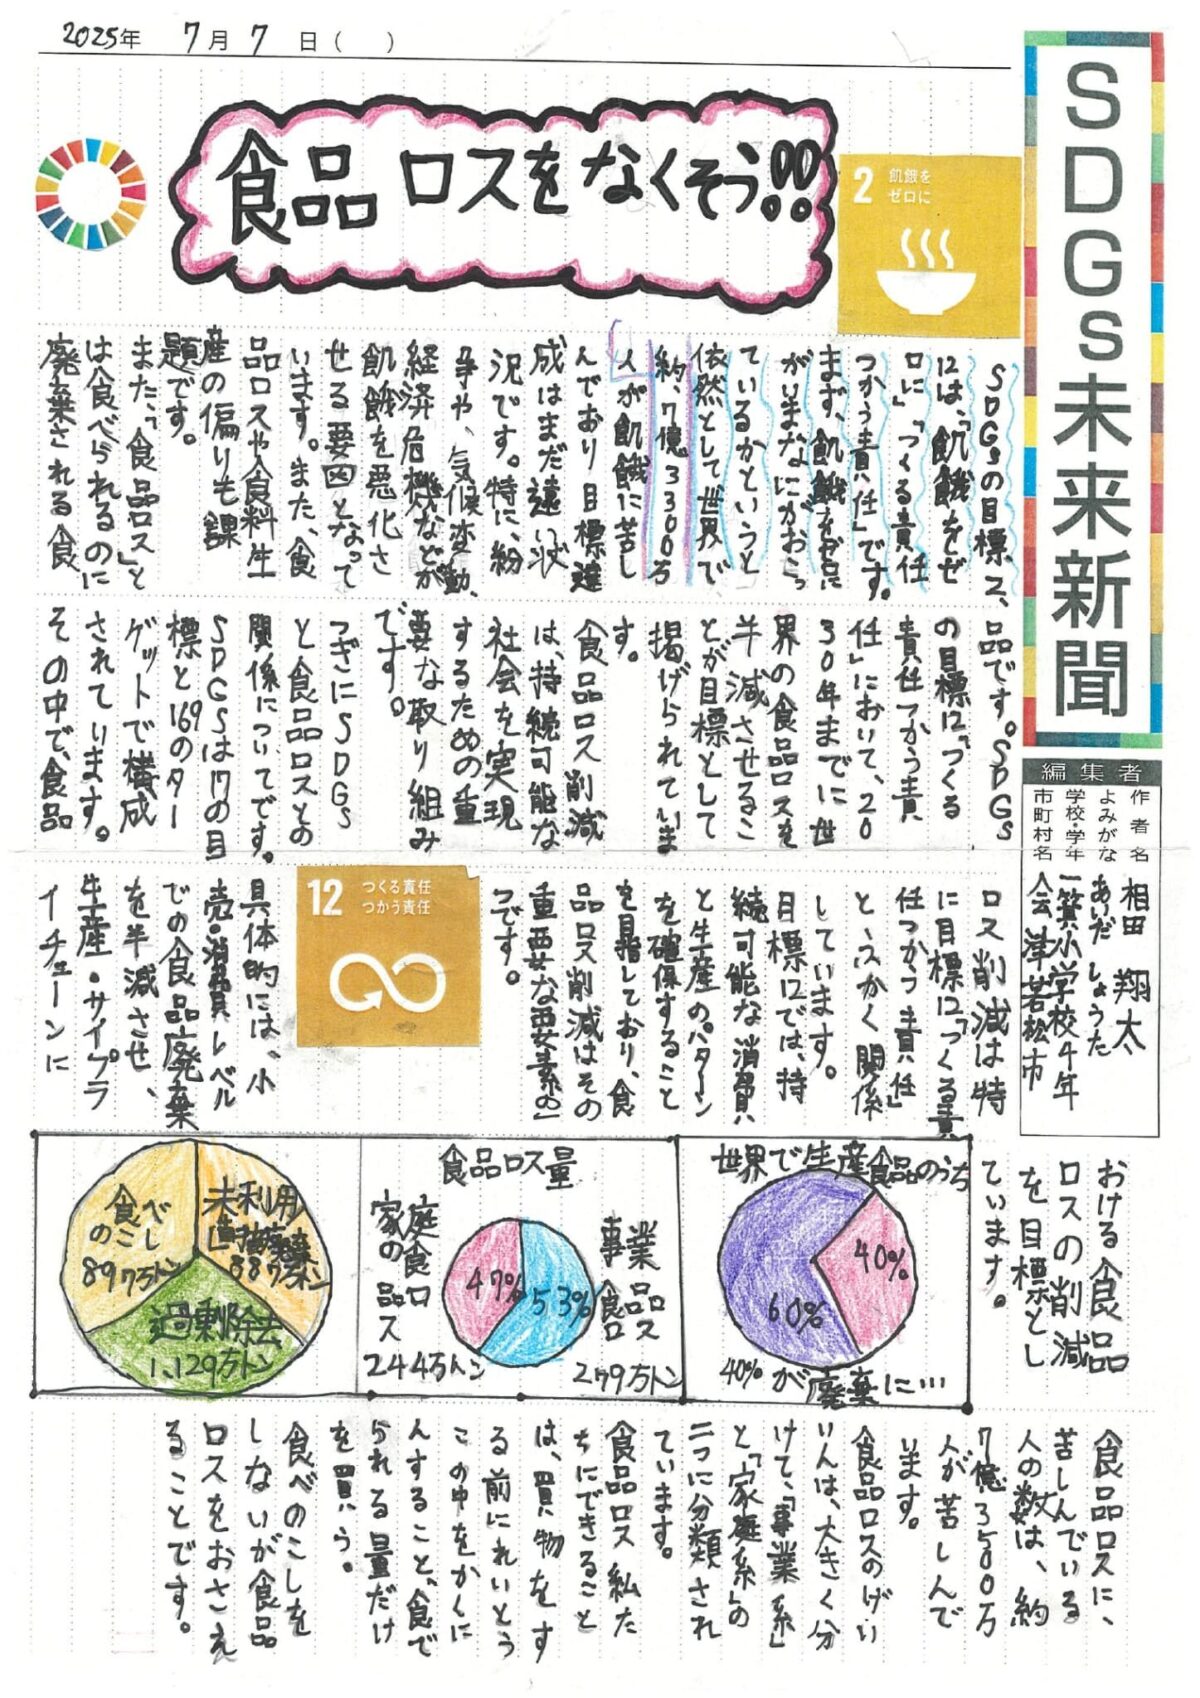 2025年 7月7日( )
SDGs未来新聞
食品ロスをなくそう!!
2 飢餓を
ゼロに
編集者
作者名 相田 翔太
よみがな あいだ しょうた
学校・学年 一箕小学校4年
市町村名 会津若松市
SDGsの目標2、
12は、「飢餓をゼ
ロに」「つくる責任
つかう責任」です。
まず、飢餓をゼロに
がいまなにがおこっ
ているかというと
依然として世界で
約、7億3300万
人が飢餓に苦し
んでおり目標達
成はまだ遠い状
況です。特に、紛
争や、気候変動、
経済危機などが
飢餓を悪化さ
せる要因となって
います。また、食
品ロスや食料生
産の偏りも課
題です。
また、「食品ロス」と
は食べられるのに
廃棄される食
品です。SDGs
の目標12「つくる
責任つかう責
任」において、20
30年までに世
界の食品ロスを
半減させるこ
とが目標として
掲げられていま
す。
食品ロス削減
は、持続可能な
社会を実現
するための重
要な取り組み
です。
つぎにSDGs
と食品ロスとの
関係についてです。
SDGSは17の目
標と169のター
ゲットで構成
されています。
その中で、食品
ロス削減は特
に目標12「つくる責
任つかう責任」
とふかく関係
しています。
目標12では、持
続可能な消費
と生産のパターン
を確保すること
を目指しており、食
品ロス削減はその
重要な要素の一
つです。
12 つくる責任
つかう責任
具体的には、小
売・消費レベル
での食品廃棄
を半減させ、
生産・サイプラ
イチェーンに
おける食品
ロスの削減
を目標とし
ています。
世界で生産食品のうち
40%
60%
40%が廃棄に…
食品ロス量
家庭の食品ロス
244万トン
47%
53%
事業食品ロス
279万トン
食べのこし
897万トン
未利用
887万トン
過剰除去
1,129万トン
食品ロスに、
苦しんでいる
人の数は、約
7億3500万
人が苦しんで
います。
食品ロスのげい
いんは、大きく分
けて、「事業系」
と「家庭系」の
二つに分類され
ています。
食品ロス私た
ちにできること
は、買い物をす
る前にれいとう
この中をかくに
んすること、食べ
られる量だけ
を買う。
食べのこしを
しないが食品
ロスをおさえ
ることです。